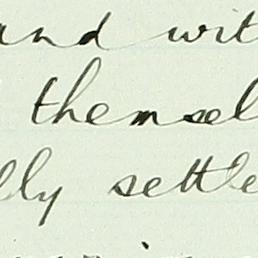 and wit
themsel
lly settle